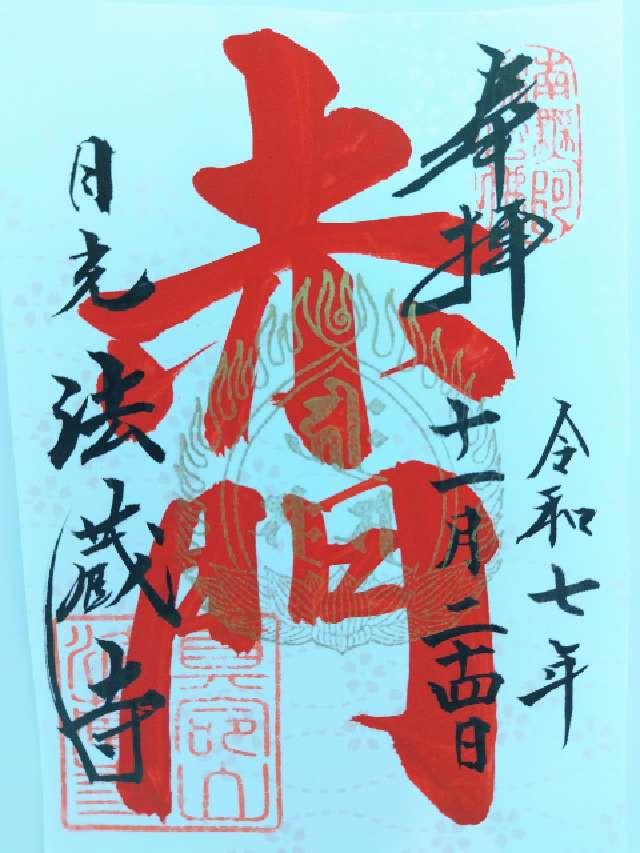 奉拝
令和七年
十一月二十四日
赤門
目光
法蔵寺